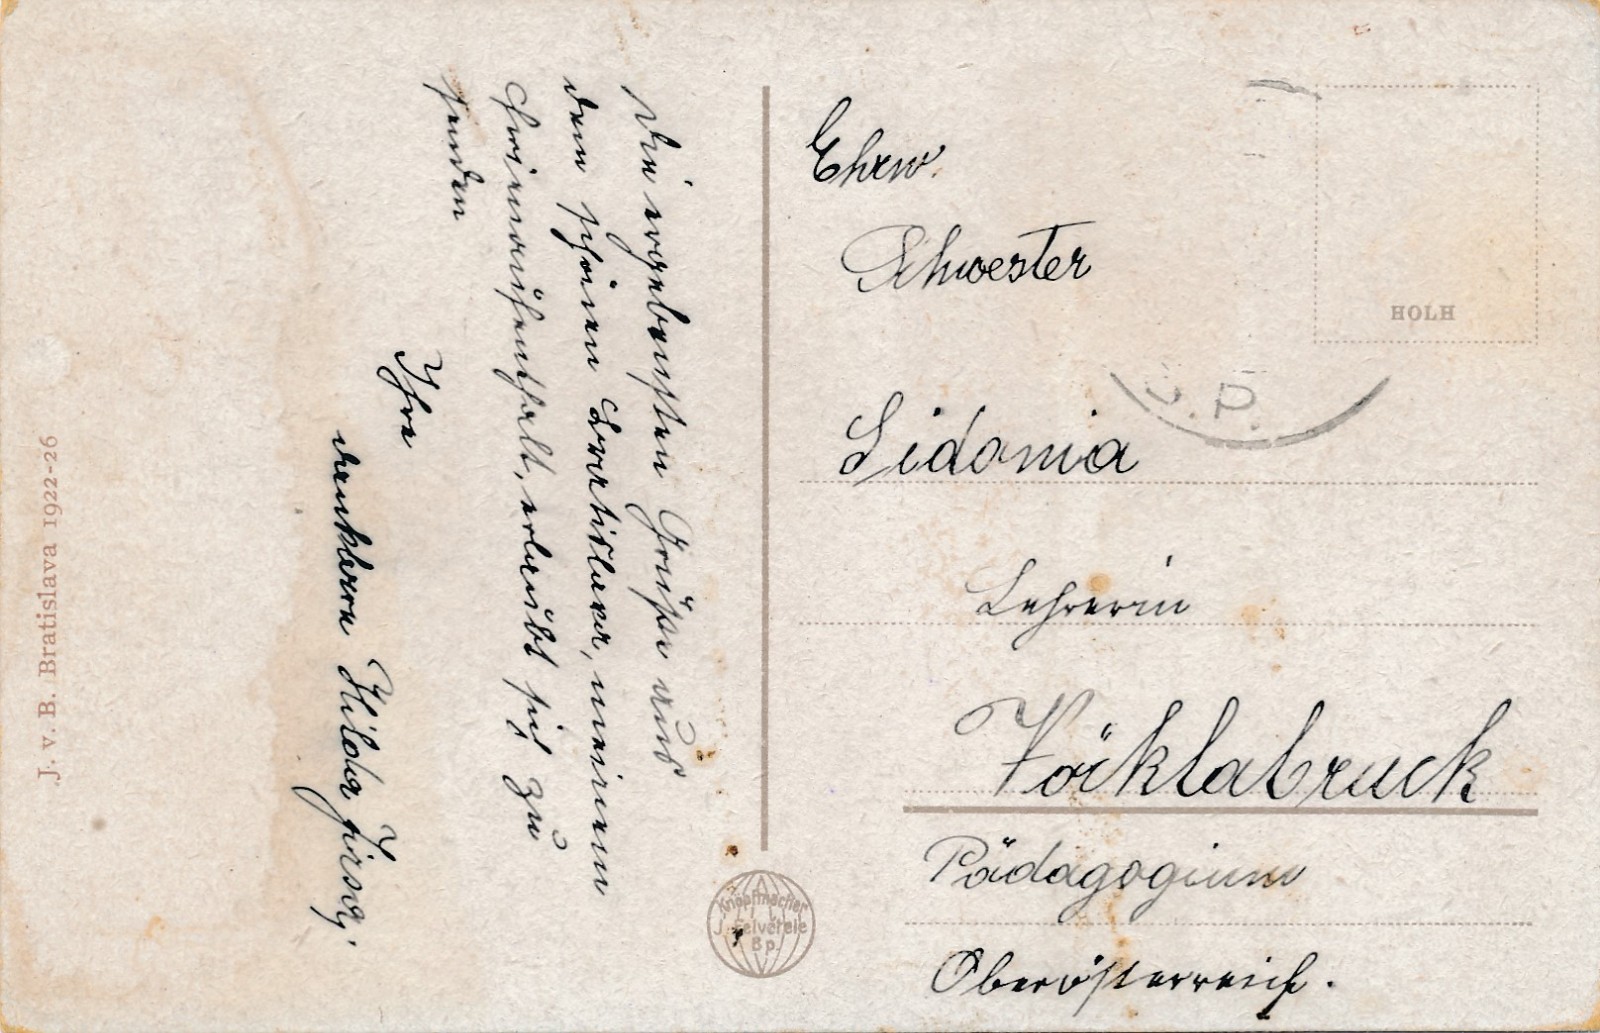 Die ergebensten Grüße aus
dem schönen Bratislava, meinem
Ferienaufenthalt, erlaubt sich zu
senden
Ihre
dankbare Hilda
Ehrw.
Schwester
Sidonia
Lehrerin
Vöcklabruck
Pädagogium
Oberösterreich.
HOLH
J. v. B. Bratislava 1922-26
Knöpfmacher
J. felvétele
Bp.